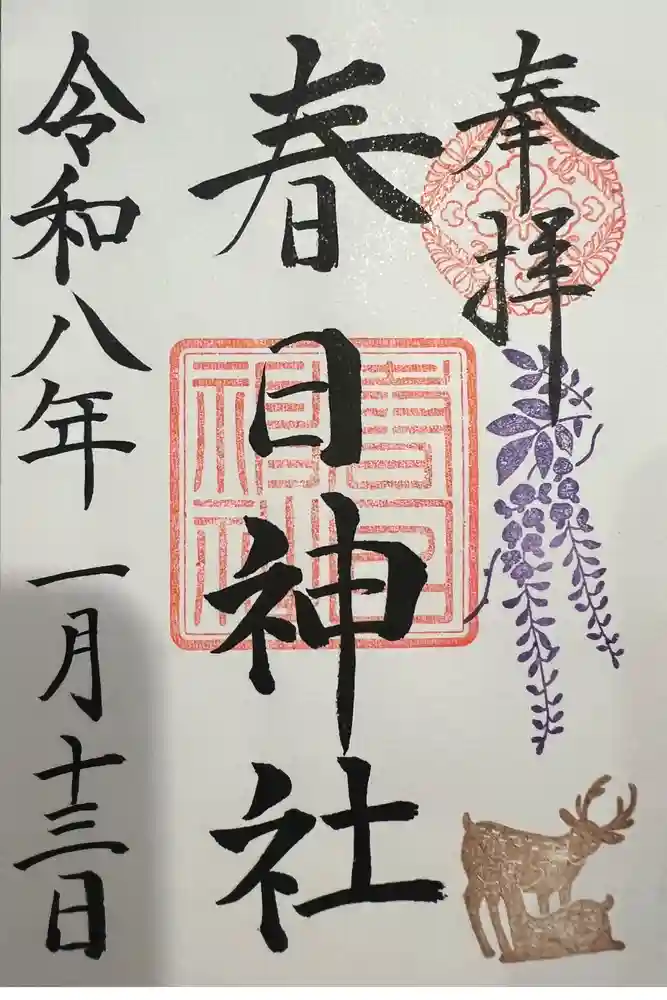 奉拝
春日神社
春日神社
令和八年一月十三日